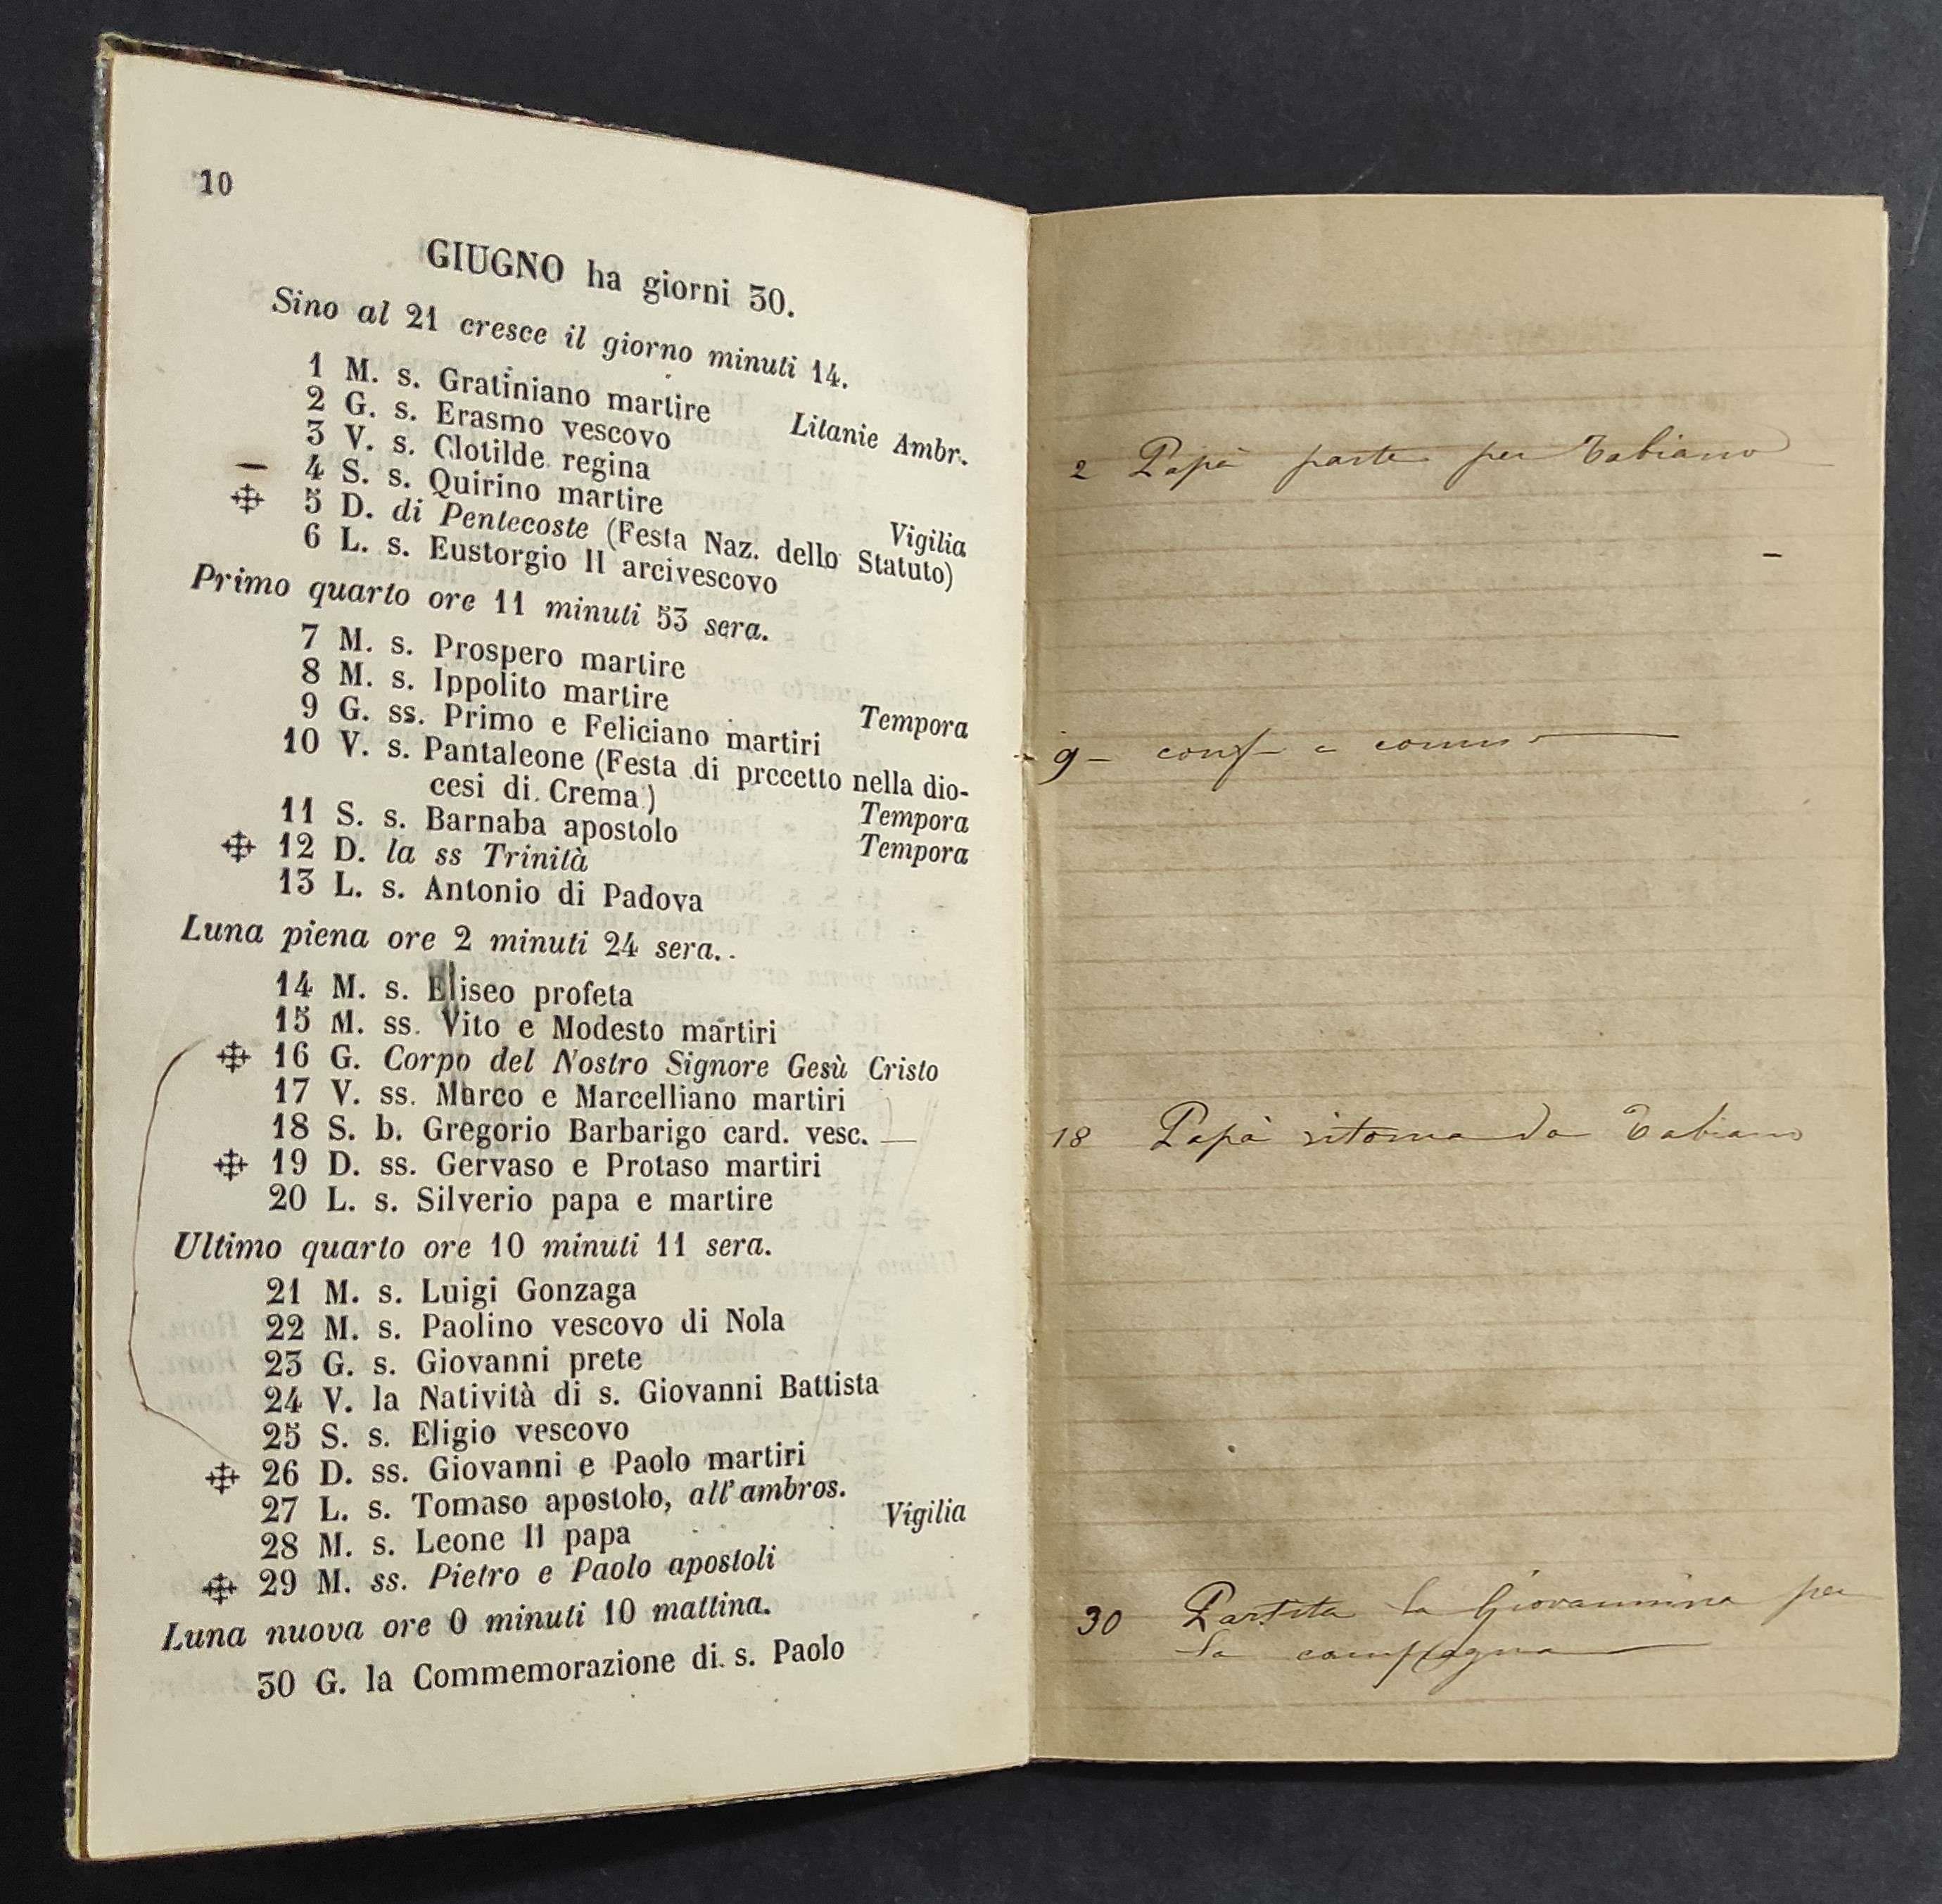 10
GIUGNO ha giorni 30.
Sino al 21 cresce il giorno minuti 14.
1 M. s. Gratiniano martire
2 G. s. Erasmo vescovo Litanie Ambr.
3 V. s. Clotilde regina
4 S. s. Quirino martire Vigilia
5 D. di Pentecoste (Festa Naz. dello Statuto)
6 L. s. Eustorgio II arcivescovo
Primo quarto ore 11 minuti 53 sera.
7 M. s. Prospero martire
8 M. s. Ippolito martire Tempora
9 G. ss. Primo e Feliciano martiri
10 V. s. Pantaleone (Festa di prccetto nella dio-
cesi di Crema) Tempora
11 S. s. Barnaba apostolo Tempora
12 D. la ss Trinità
13 L. s. Antonio di Padova
Luna piena ore 2 minuti 24 sera.
14 M. s. Eliseo profeta
15 M. ss. Vito e Modesto martiri
16 G. Corpo del Nostro Signore Gesù Cristo
17 V. ss. Marco e Marcelliano martiri
18 S. b. Gregorio Barbarigo card. vesc.
19 D. ss. Gervaso e Protaso martiri
20 L. s. Silverio papa e martire
Ultimo quarto ore 10 minuti 11 sera.
21 M. s. Luigi Gonzaga
22 M. s. Paolino vescovo di Nola
23 G. s. Giovanni prete
24 V. la Natività di s. Giovanni Battista
25 S. s. Eligio vescovo
26 D. ss. Giovanni e Paolo martiri
27 L. s. Tomaso apostolo, all'ambros.
28 M. s. Leone II papa Vigilia
29 M. ss. Pietro e Paolo apostoli
Luna nuova ore 0 minuti 10 mattina.
30 G. la Commemorazione di s. Paolo
2 Papà parte per Tabiano
9 - conf e comun
18 Papà ritorna da Tabiano
30 Partita la Giovannina per
la campagna